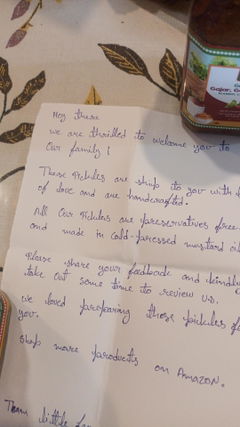 Hey there
we are thrilled to welcome you to
Our family!
These Pickles are ship to you with
of love and are handcrafted.
All Our Pickles are preservatives free
and made in cold-pressed mustard oil
Please share your feedback and kindly
take out some time to review us.
we loved preparing these pickles
you.
shop more products on Amazon.
Team little
Gajar, G